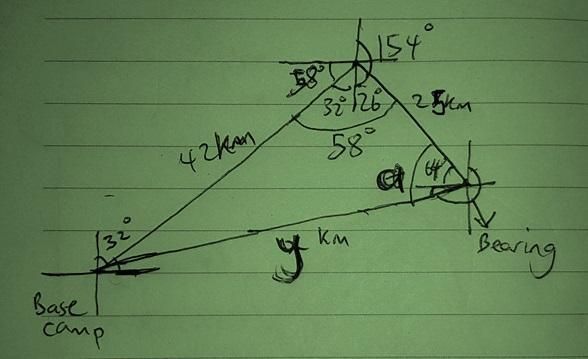 154°
58°
32° 26°
25km
58°
42km
64
32°
y km
Bearing
Base
camp